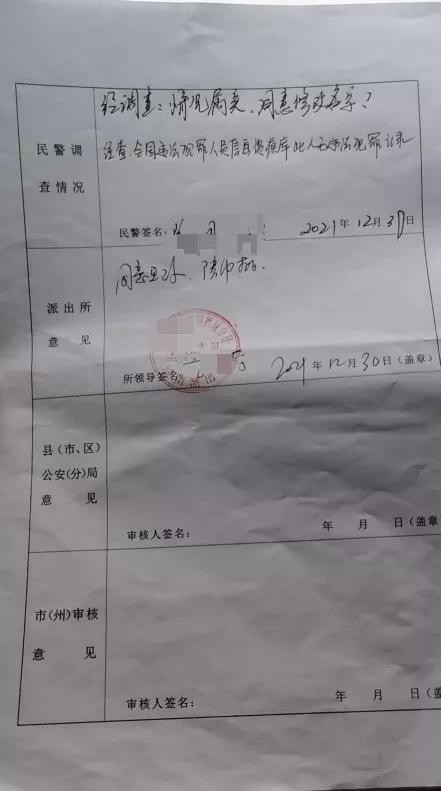 经调查：情况属实，同意修改名字。
民警调
查情况
经查，全国违法犯罪人员信息资源库此人无违法犯罪记录
民警签名：
2021年12月30日
派出所
意 见
所领导签名：
2021年12月30日（盖章）
县（市、区）
公安（分）局
意 见
审核人签名：
年 月 日（盖章
市（州）审核
意 见
审核人签名：
年 月 日（盖章